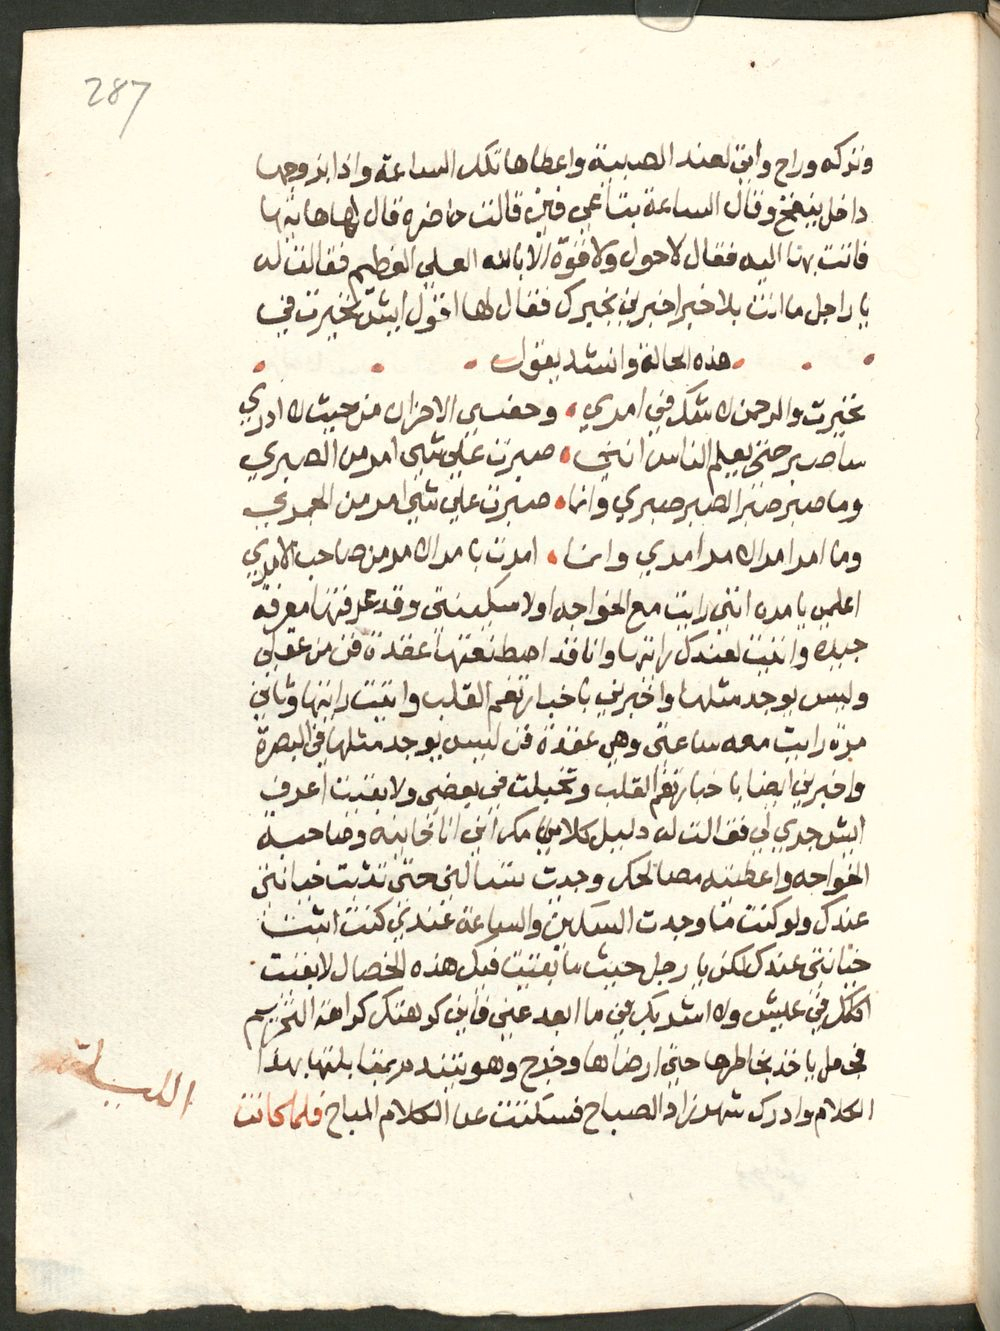 287
وتركه وراح واتى لعند الصبية واعطاها تلك الساعة واذا بزوجها
داخل ينفخ وقال الساعة بتاعي فين قالت حاضره قال لها هاتيها
فاتت بها اليه فقال لا حول ولا قوة الا بالله العلي العظيم فقالت له
يا راجل ما انت بلا خبر اخبرني بخبرك فقال لها اقول ايش تحيرت في
هذه الحالة وانشد يقول
تحيرت والرحمن لا شك في امري وحفتني الاحزان من حيث لا ادري
ساصبر حتى يعلم الناس انني صبرت على شي امر من الصبري
وما صبر صبر الصبر صبري وانما صبرت على شي امر من الجمري
وما امر امر الامر امري وانما امرت بامر الامر من صاحب الامري
اعلمي يا مره انني رايت مع الخواجه اولا سكينتي وقد عرفتها معرفة
جيده واتيت لعندك رايتها وانا قد اصطنعتها عقدة فن من عقلي
وليس يوجد مثلها واخبرني باخبار تغم القلب واتيت رايتها وثاني
مرة رايت معه ساعتي وهي عقدة فن ليس يوجد مثلها في البصرة
واخبرني ايضا باخبار تغم القلب وتخيلت في بعضي ولا بقيت اعرف
ايش جري لي فقالت له دليل كلامك اني انا خاينه وصاحبة
الخواجه واعطيته مصالحك وجيت تسالني حتى تثبت خيانتي
عندك ولو كنت ما وجدت السكين والساعة عندي كنت اثبت
خيانتي عندك لكن يا رجل حيث ما بقيت فيك هذه الخصال لا بقيت
اكلك في عيش ولا اشربك في ما ابعد عني فاني كرهتك كراهة التحريم
فجعل ياخذ بخاطرها حتى ارضاها وخرج وهو يتندم بمقابلتها بهذا
الكلام وادرك شهرزاد الصباح فسكتت عن الكلام المباح فلما كانت
الليلة